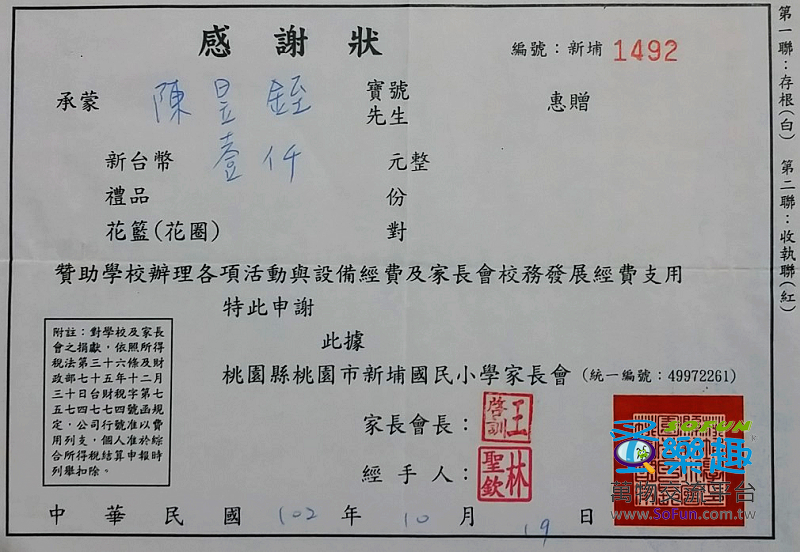 感謝狀
編號：新埔 1492
承蒙 陳昱銍 寶號 先生 惠贈
新台幣 壹仟 元整
禮品 份
花籃(花圈) 對
贊助學校辦理各項活動與設備經費及家長會校務發展經費支用
特此申謝
此據
桃園縣桃園市新埔國民小學家長會(統一編號：49972261)
附註：對學校及家長
會之捐獻，依照所得
稅法第三十六條及財
政部七十五年十二月
三十日台財稅字第七
五七四七七四號函規
定，公司行號准以費
用列支，個人准於綜
合所得稅結算申報時
列舉扣除。
家長會長：王啓訓
經手人：林聖欽
中華民國 102 年 10 月 19 日
第一聯：存根(白) 第二聯：收執聯(紅)
SOFUN
樂趣
萬物交流平台
www.SoFun.com.tw